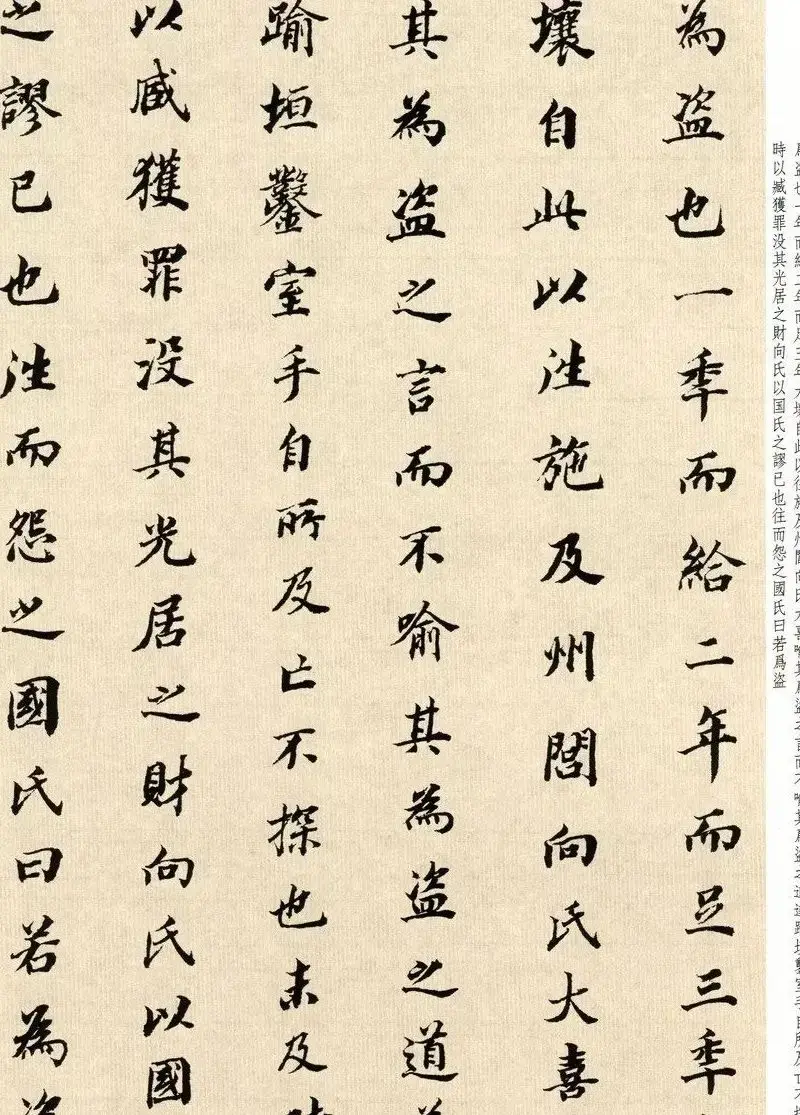 為盗也一秊而給二年而足三秊
壤自此以往施及州閭向氏大喜
其為盗之言而不喻其為盗之道
踰垣鑿室手自所及亡不探也未及
以臧獲罪没其光居之財向氏以國
之謬已也往而怨之國氏曰若為盗
時以臧獲罪没其光居之財向氏以国氏之謬已也往而怨之國氏曰若爲盗